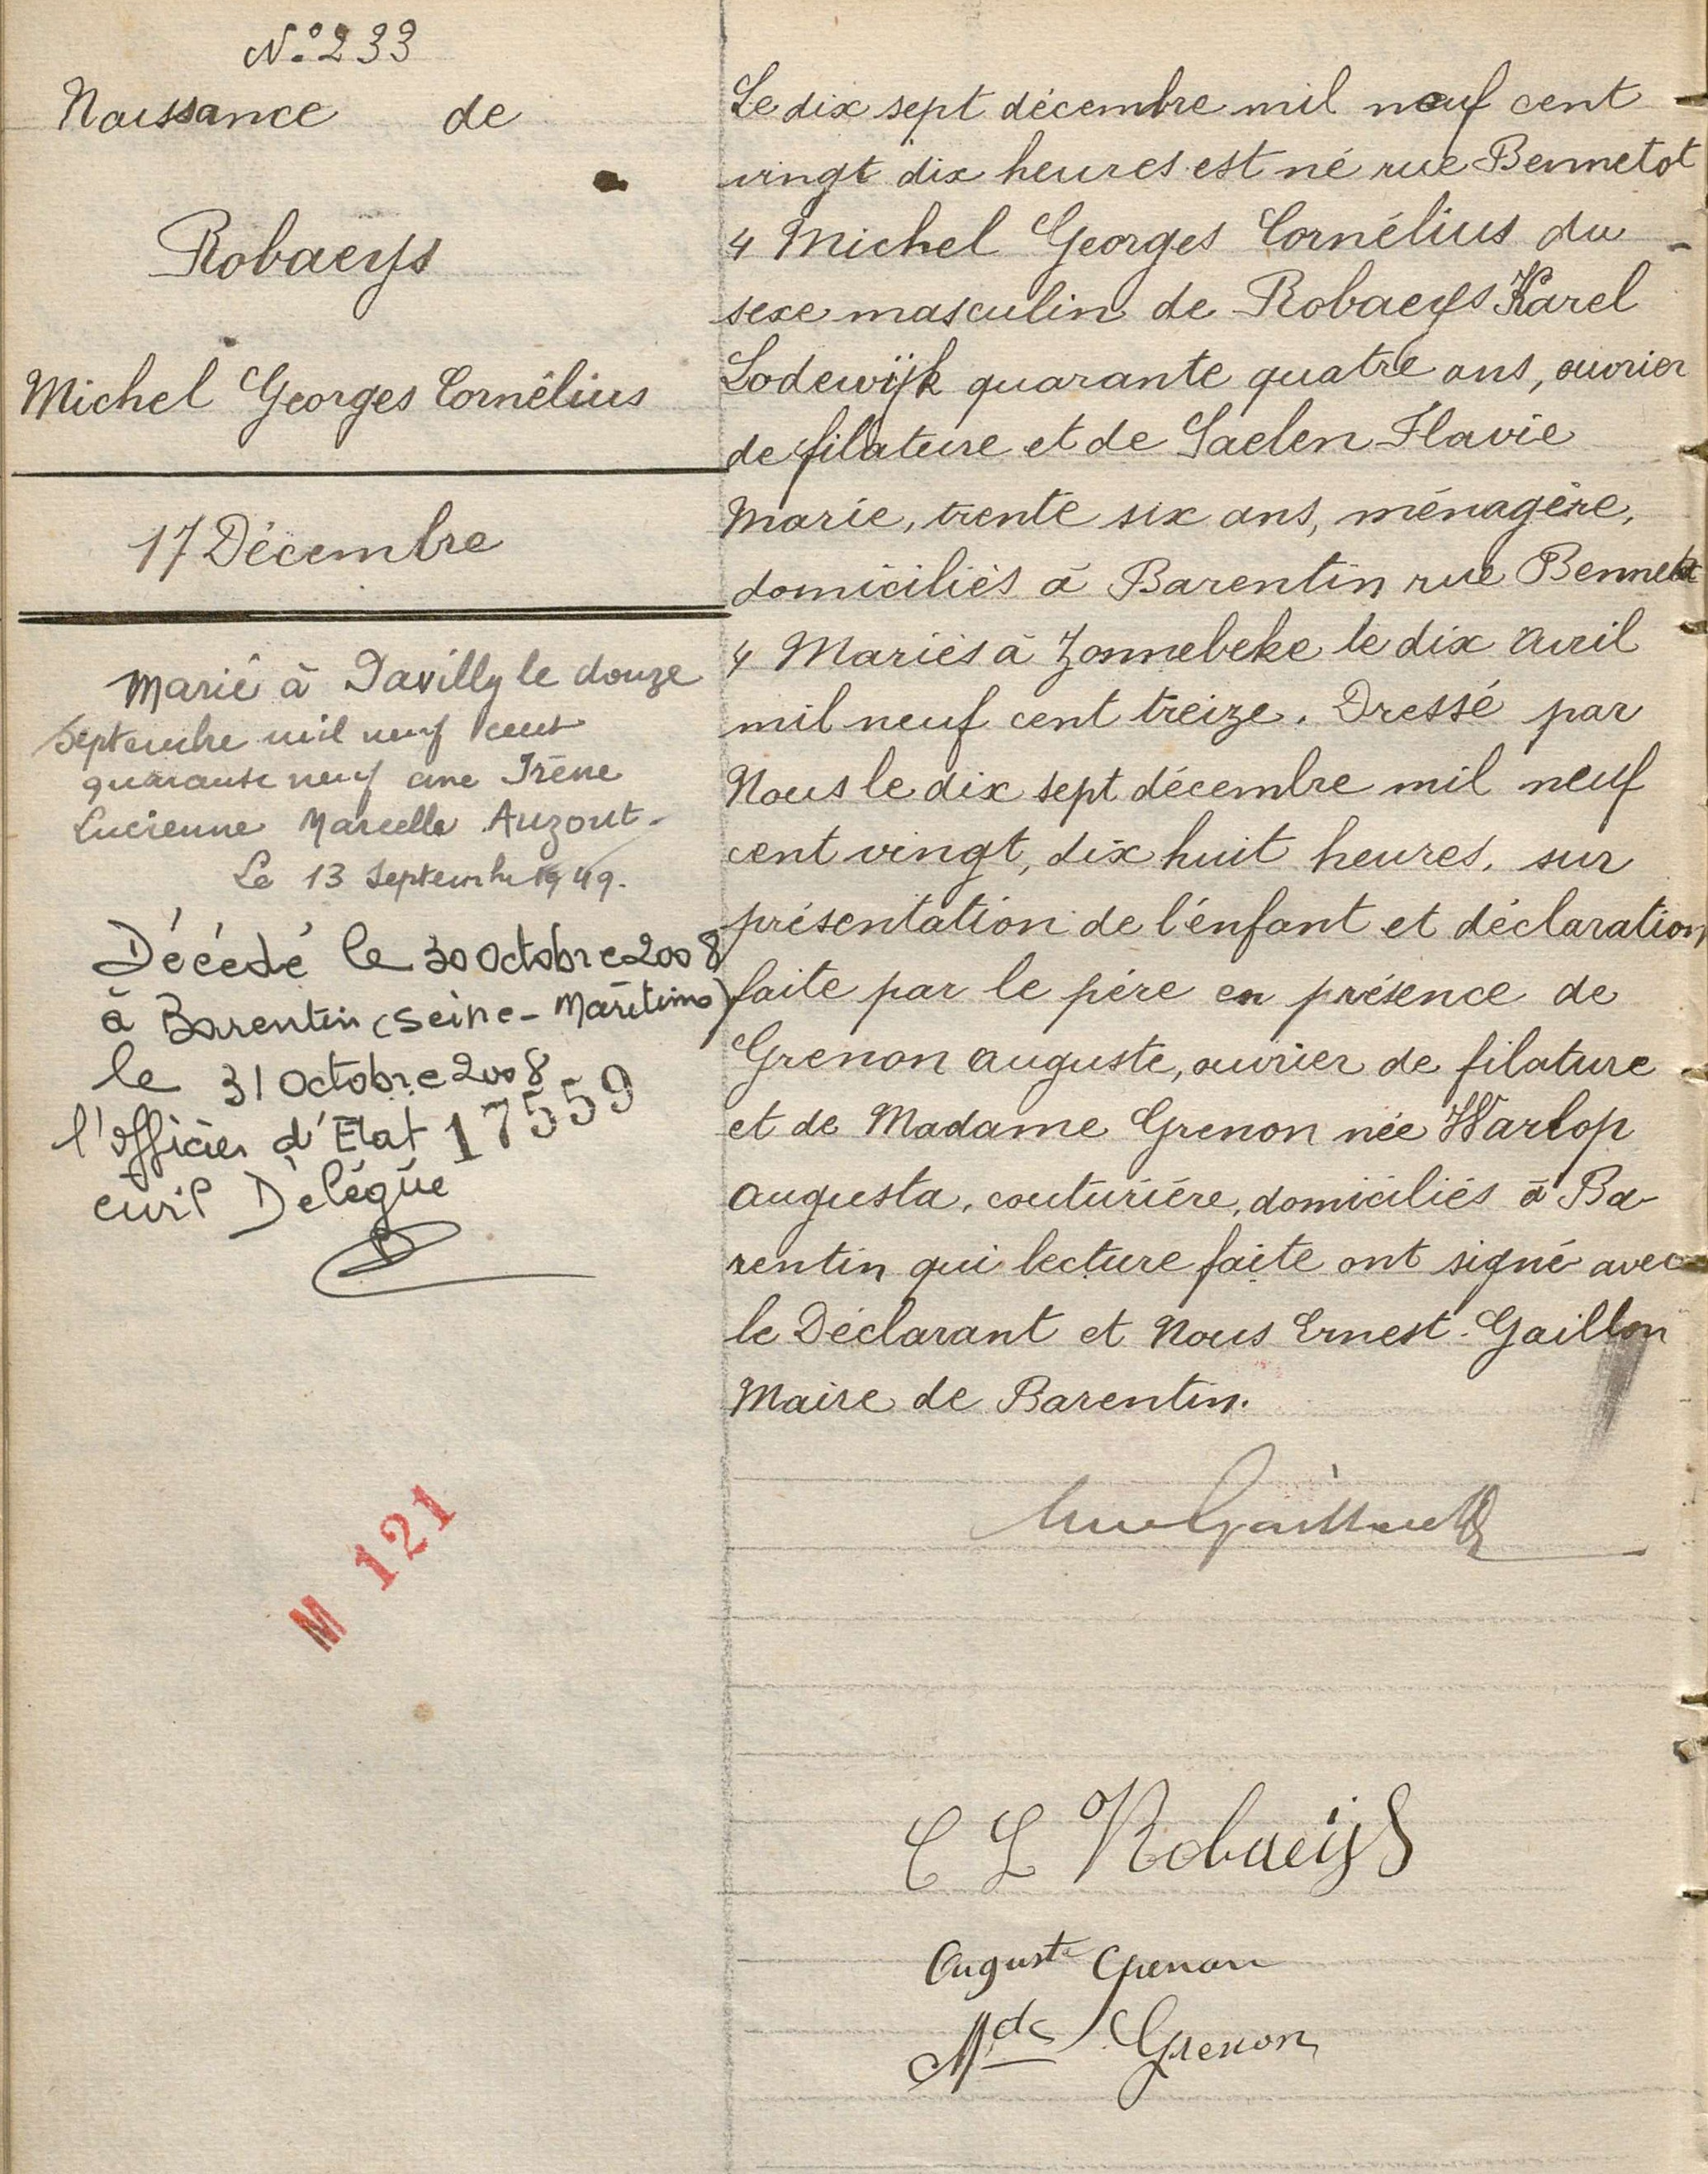 N.° 233
Naissance de
Robaeys
Michel Georges Cornélius
17 Décembre
Marié à Pavilly le douze
septembre mil neuf cent
quarante neuf avec Irène
Lucienne Marcelle Auzout.
Le 13 Septembre 1949.
Décédé le 30 octobre 2008
à Barentin (Seine-Maritime)
le 31 octobre 2008
l'officier d'Etat 17559
civil Délégué
M 121
Le dix sept décembre mil neuf cent
vingt dix heures est né rue Bennetot
4 Michel Georges Cornélius du
sexe masculin de Robaeys Karel
Lodewijk quarante quatre ans, ouvrier
de filature et de Saelen Flavie
Marie, trente six ans, ménagère,
domiciliés à Barentin rue Bennetot
4 Mariés à Zonnebeke le dix avril
mil neuf cent treize. Dressé par
Nous le dix sept décembre mil neuf
cent vingt, dix huit heures, sur
présentation de l'enfant et déclaration
faite par le père en présence de
Grenon Auguste, ouvrier de filature
et de Madame Grenon née Warlop
Augusta, couturière, domiciliés à Ba-
rentin qui lecture faite ont signé avec
le Déclarant et Nous Ernest Gaillon
Maire de Barentin.
C L Robaeijs
Auguste Grenon
Mde Grenon